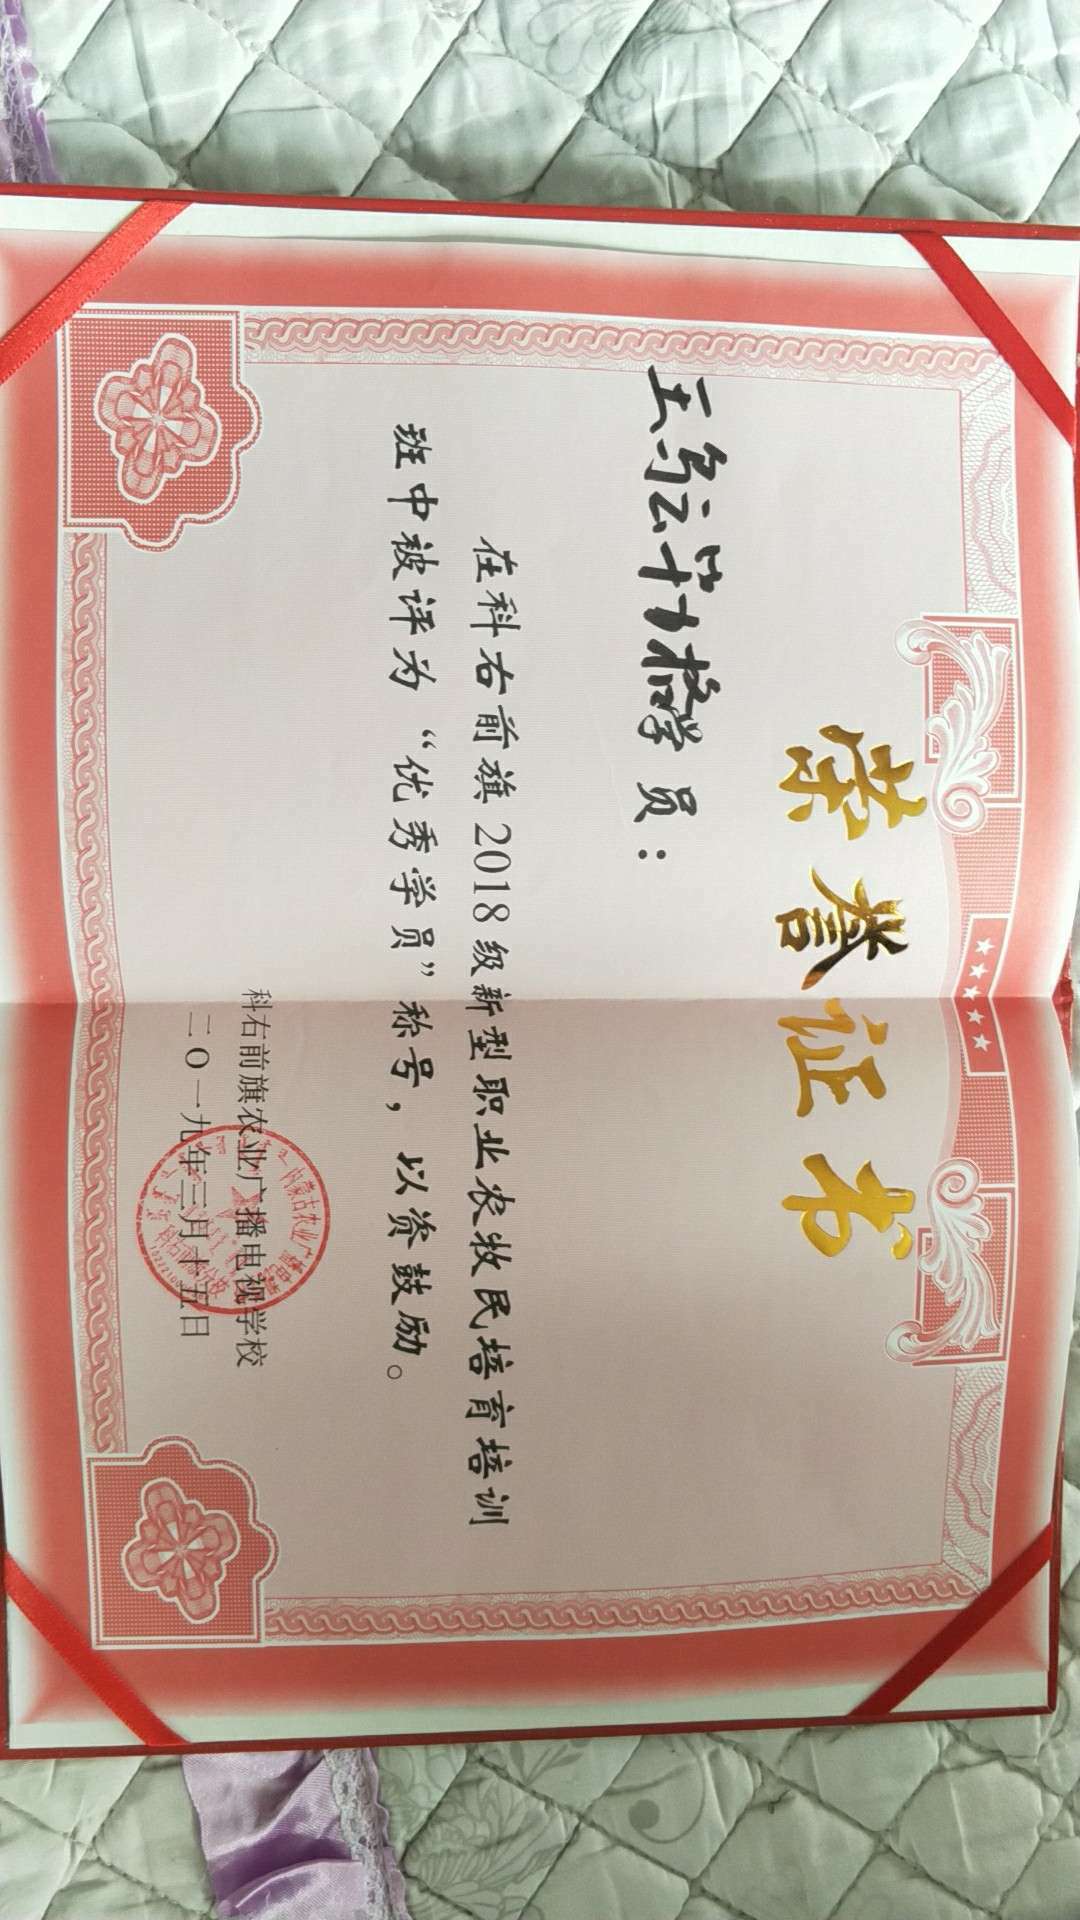 荣誉证书
学员：
在科右前旗2018级新型职业农牧民培育培训
班中被评为“优秀学员”称号，以资鼓励。
科右前旗农业广播电视学校
二〇一九年三月十五日
内蒙古农业广播电视